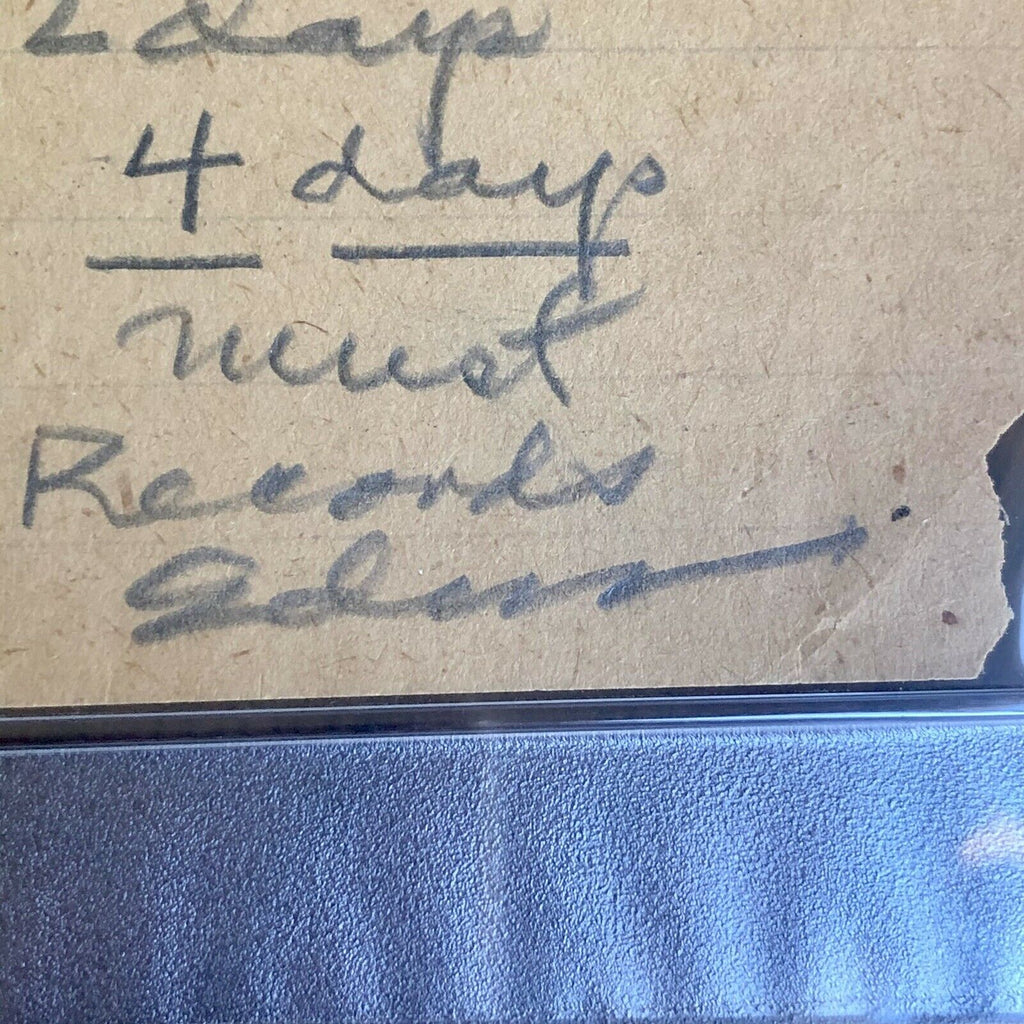 2 days
4 days
must
Records